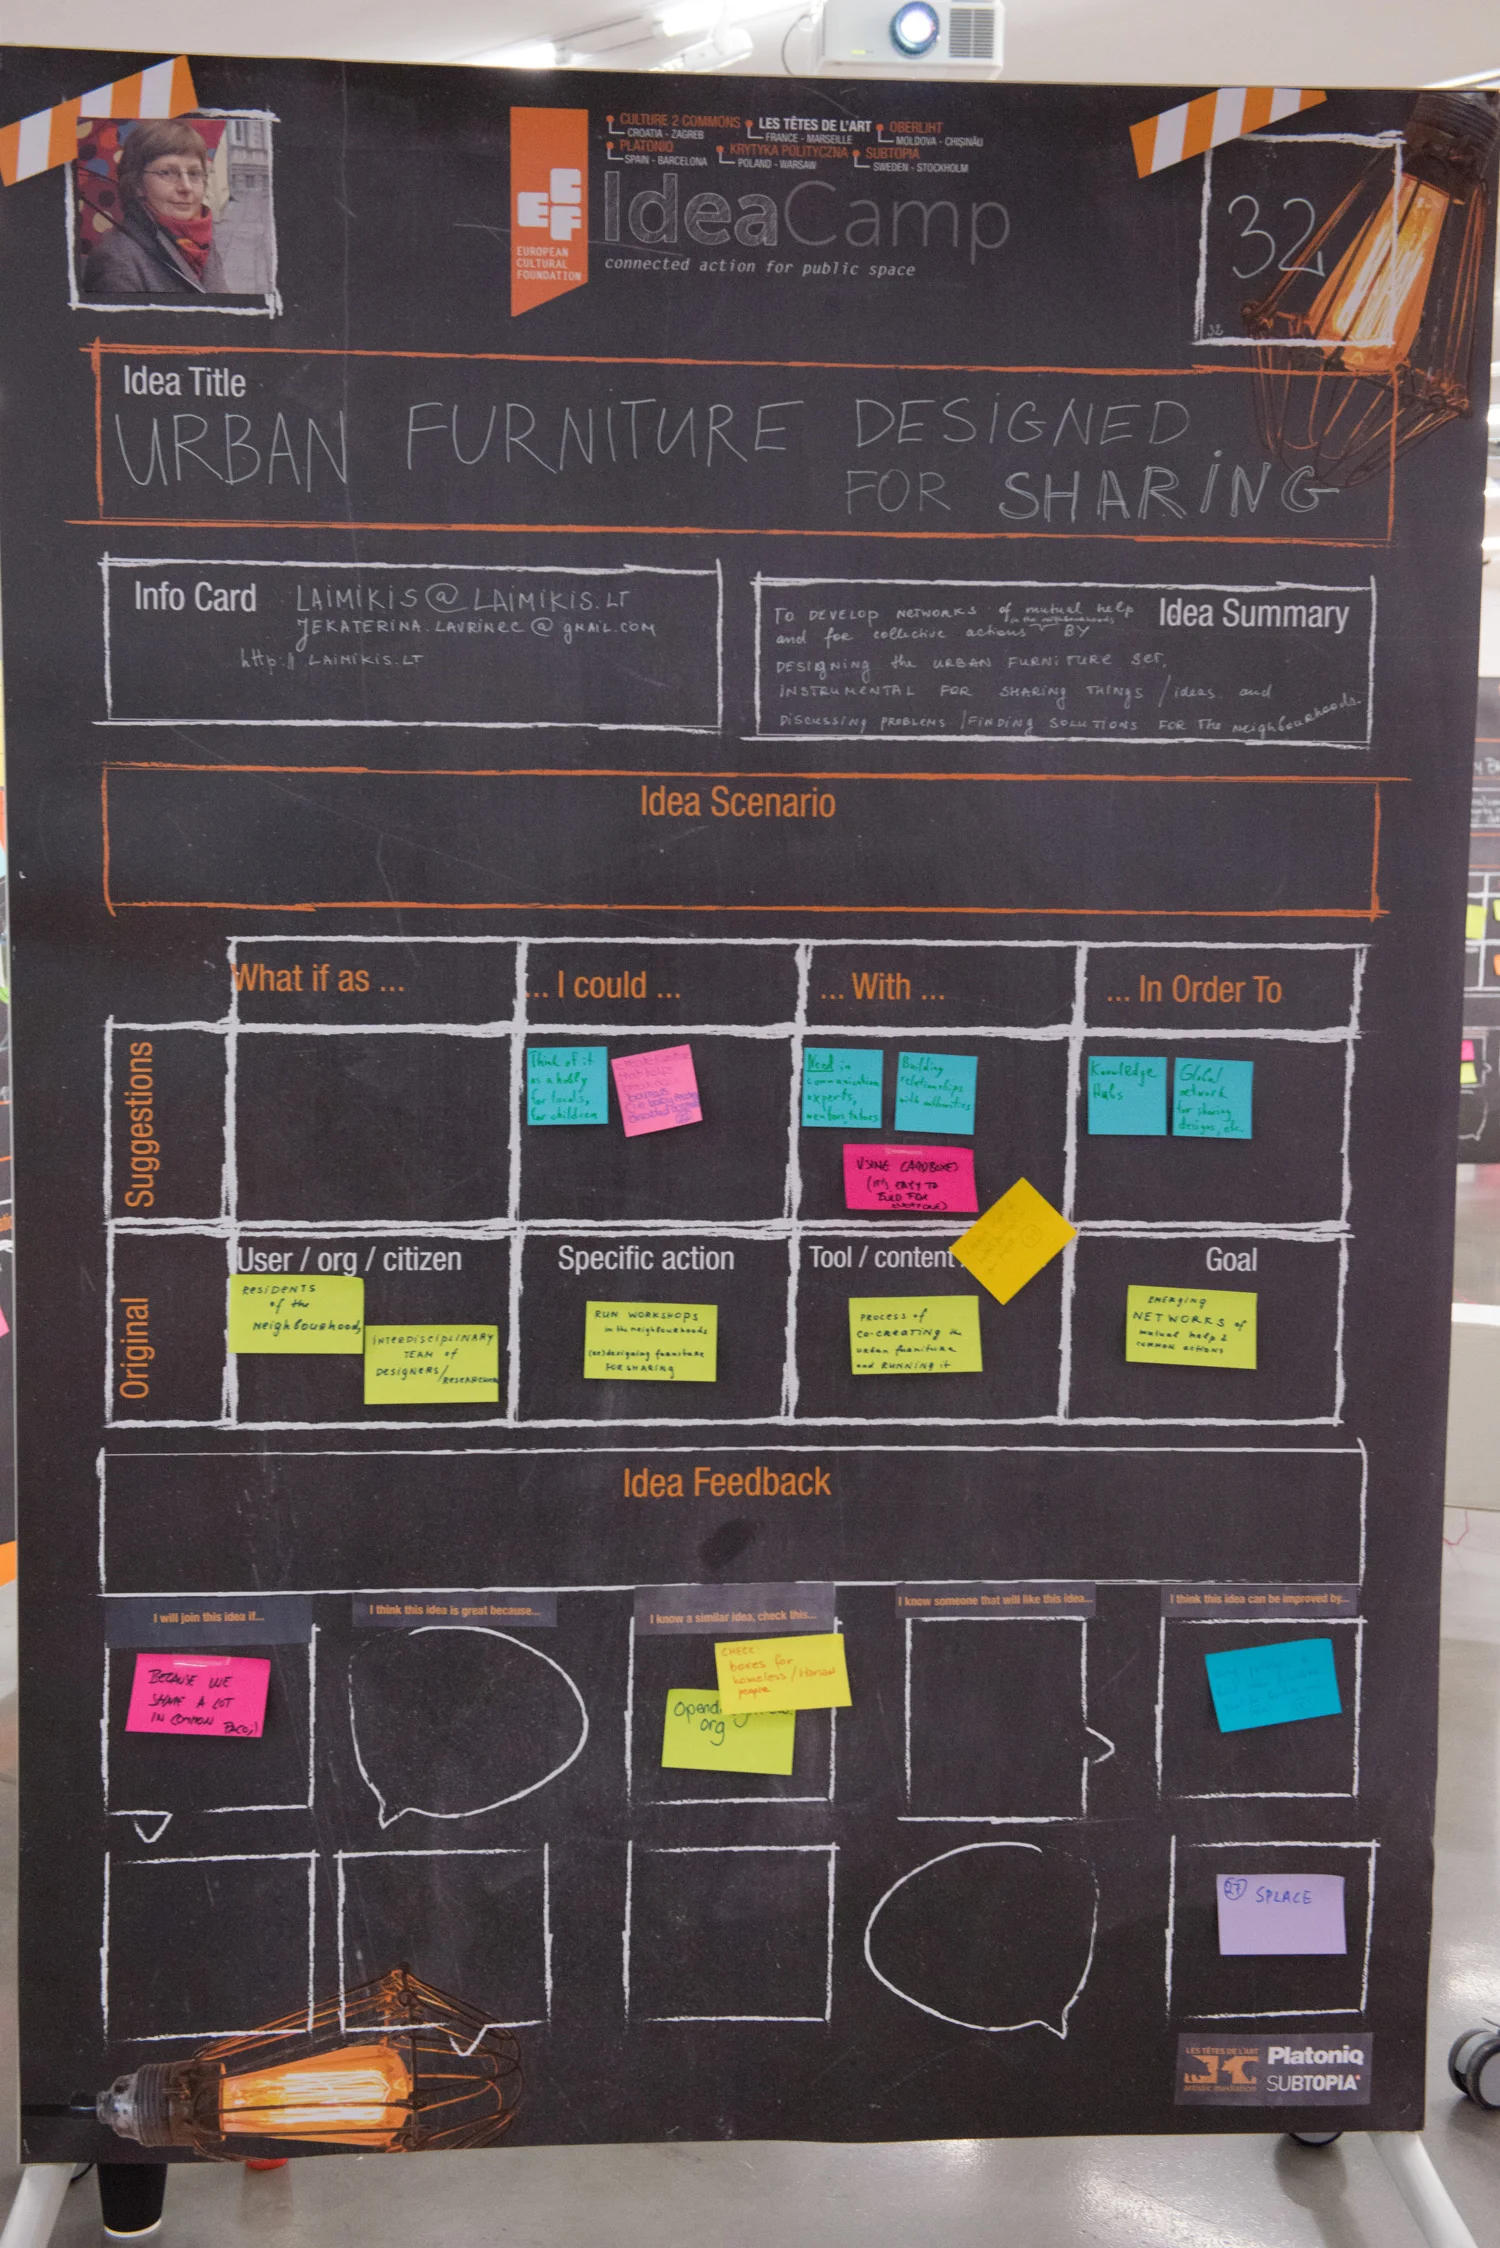 CULTURE 2 COMMONS
CROATIA - ZAGREB
LES TÊTES DE L'ART
FRANCE - MARSEILLE
OBERLIHT
MOLDOVA - CHIȘINĂU
PLATONIQ
SPAIN - BARCELONA
KRYTYKA POLITYCZNA
POLAND - WARSAW
SUBTOPIA
SWEDEN - STOCKHOLM
ECF
EUROPEAN
CULTURAL
FOUNDATION
IdeaCamp
connected action for public space
32
32
Idea Title
URBAN FURNITURE DESIGNED
FOR SHARING
Info Card
LAIMIKIS@LAIMIKIS.LT
JEKATERINA.LAVRINEC@GMAIL.COM
http:// LAIMIKIS.LT
Idea Summary
TO DEVELOP NETWORKS of mutual help
in the neighbourhoods
and for collective actions BY
DESIGNING the URBAN FURNITURE SET,
INSTRUMENTAL FOR SHARING THINGS / ideas and
DISCUSSING PROBLEMS / FINDING SOLUTIONS FOR THE neighbourhoods.
Idea Scenario
What if as ...
... I could ...
... With ...
... In Order To
Suggestions
Think of it
as a hobby
for locals,
for children
Need in
communication
experts,
mentors, tutors
Building
relationships
with authorities
USING CARDBOXES
(it's EASY TO
BUILD FOR
EVERYONE)
Knowledge
Hubs
Global
network
for sharing
designs, etc.
Original
User / org / citizen
RESIDENTS
of the
neighbourhood,
INTERDISCIPLINARY
TEAM of
DESIGNERS/
RESEARCHERS
Specific action
RUN WORKSHOPS
in the neighbourhoods
(re)designing furniture
FOR SHARING
Tool / content
PROCESS of
CO-CREATING the
urban furniture
and RUNNING it
Goal
EMERGING
NETWORKS of
mutual help &
common actions
Idea Feedback
I will join this idea if...
I think this idea is great because...
I know a similar idea, check this...
I know someone that will like this idea...
I think this idea can be improved by...
BECAUSE WE
SHARE A LOT
IN COMMON
CHECK:
boxes for
homeless /
people
org
27 SPLACE
LES TÊTES DE L'ART
artistic mediation
Platoniq
SUBTOPIA